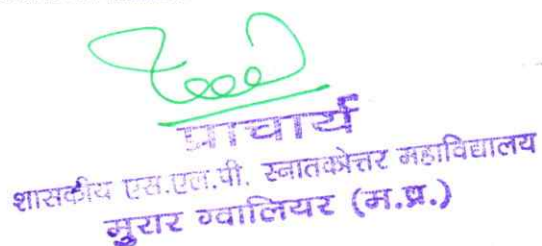 प्राचार्य
शासकीय एस.एल.पी. स्नातकोत्तर महाविद्यालय
मुरार ग्वालियर (म.प्र.)